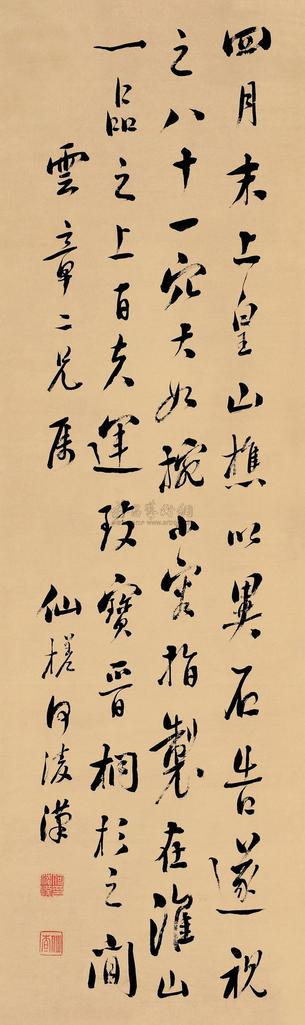 四月末上皇山樵以異石告遂視
之八十一穴大如捥小容指製在淮山
一品之上百夫運致寶晉桐杉之間
雲章二兄属
仙槎何凌漢